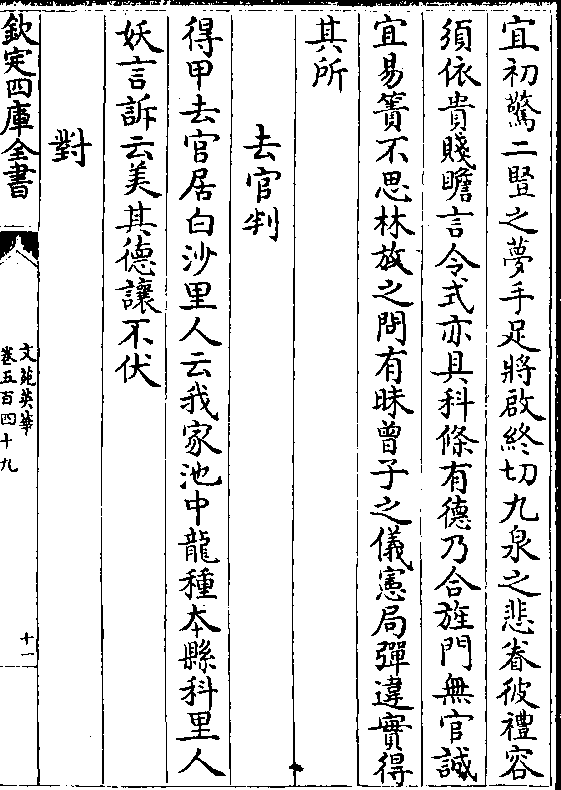 宜初驚二豎之夢手足將啟終切九泉之悲眷彼禮容
須依貴賤瞻言令式亦具科條有德乃合旌門無官誠
宜易簀不思林放之問有昧曾子之儀憲局彈違實得
其所
去官判
得甲去官居白沙里人云我家池中龍種本縣科里人
妖言訴云美其德讓不伏
對
欽定四庫全書
文苑英華
卷五百四十九
十一